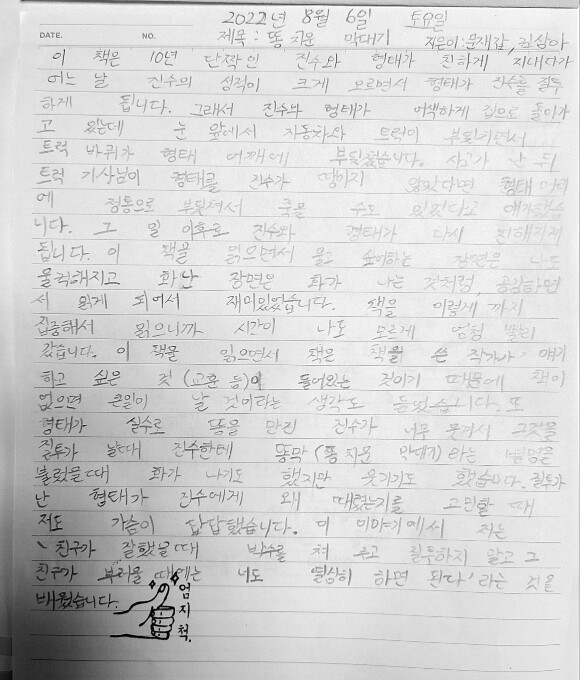 2022년 8월 6일 토요일
DATE. NO. 제목: 똥 치운 막대기 지은이:문재갑, 김상아
이 책은 10년 단짝인 진수와 형태가 친하게 지내다가
어느 날 진수의 성적이 크게 오르면서 형태가 진수를 질투
하게 됩니다. 그래서 진수와 형태가 어색하게 집으로 돌아가
고 있는데 눈 앞에서 자동차와 트럭이 부딪치면서
트럭 바퀴가 형태 어깨에 부딪쳤습니다. 사고가 난 뒤
트럭 기사님이 형태를 진수가 땡기지 않았다면 형태 머리
에 정통으로 부딪쳐서 죽을 수도 있었다고 얘기했습
니다. 그 일 이후로 진수와 형태가 다시 친해지게
됩니다. 이 책을 읽으면서 울고 싶어하는 장면은 나도
울컥해지고 화난 장면은 화가 나는 것처럼, 공감하면
서 읽게 되어서 재미있었습니다. 책을 이렇게 까지
집중해서 읽으니까 시간이 나도 모르게 엄청 빨리
갔습니다. 이 책을 읽으면서 책은 책을 쓴 작가가 얘기
하고 싶은 것 (교훈 등)이 들어있는 것이기 때문에 책이
없으면 큰일이 날 것이라는 생각도 들었습니다. 또
형태가 실수로 똥을 만진 진수가 너무 웃겨서 그것을
질투가 날때 진수한테 똥막 (똥 치운 막대기)라는 별명을
불렀을때 화가 나기도 했지만 웃기기도 했습니다. 질투가
난 형태가 진수에게 왜 때렸는지를 고민할 때
저도 가슴이 답답했습니다. 이 이야기에서 저는
'친구가 잘했을때 박수를 쳐 주고 질투하지 말고 그
친구가 부러울 때에는 너도 열심히 하면 된다'라는 것을
배웠습니다.
엄지척.